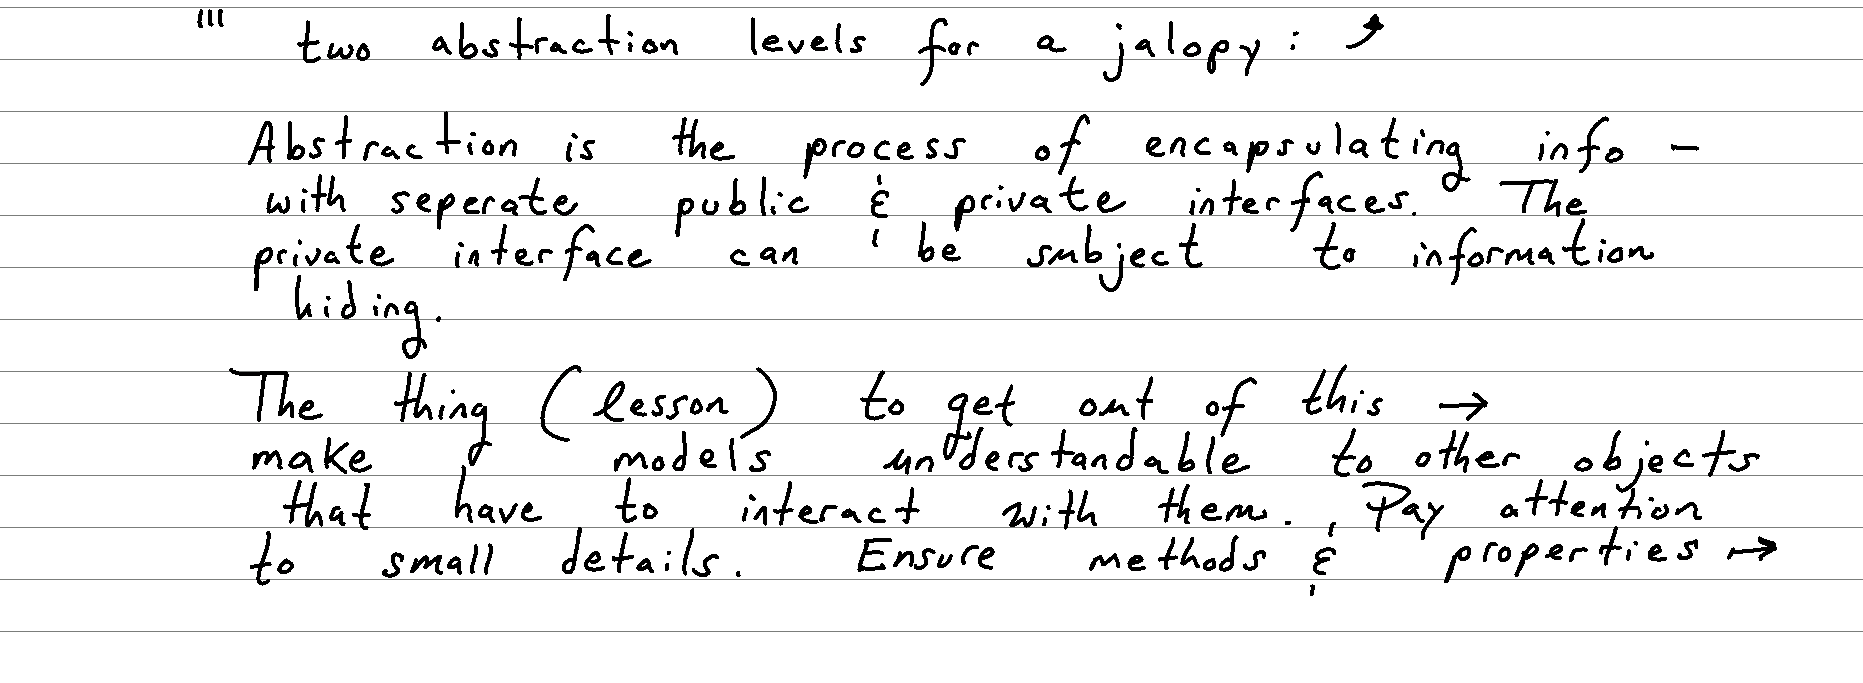 ''' two abstraction levels for a jalopy: ↗
Abstraction is the process of encapsulating info -
with seperate public & private interfaces. The
private interface can be subject to information
hiding.
The thing (lesson) to get out of this →
make models understandable to other objects
that have to interact with them. Pay attention
to small details. Ensure methods & properties →